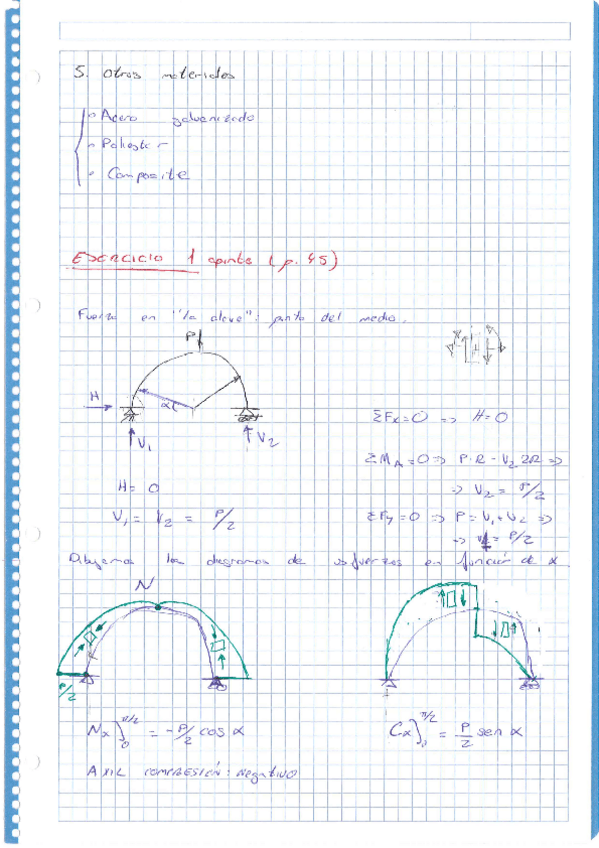 5. Otros materiales
- Acero galvanizado
- Poliester
- Composite
Ejercicio 1 apunte (p. 45)
Fuerza en "la clave": punto del medio.
P
H
α
V₁
V₂
ΣFx=0 => H=0
ΣM_A=0 => P·R - V₂ 2R =>
=> V₂ = P/2
H = 0
V₁ = V₂ = P/2
ΣFy=0 => P=V₁+V₂ =>
=> V₁ = P/2
Dibujamos los diagramas de esfuerzos en función de α
N
P/2
Nx]₀^π/2 = -P/2 cos α
Cx]₀^π/2 = P/2 sen α
AXIL COMPRESIÓN: negativo